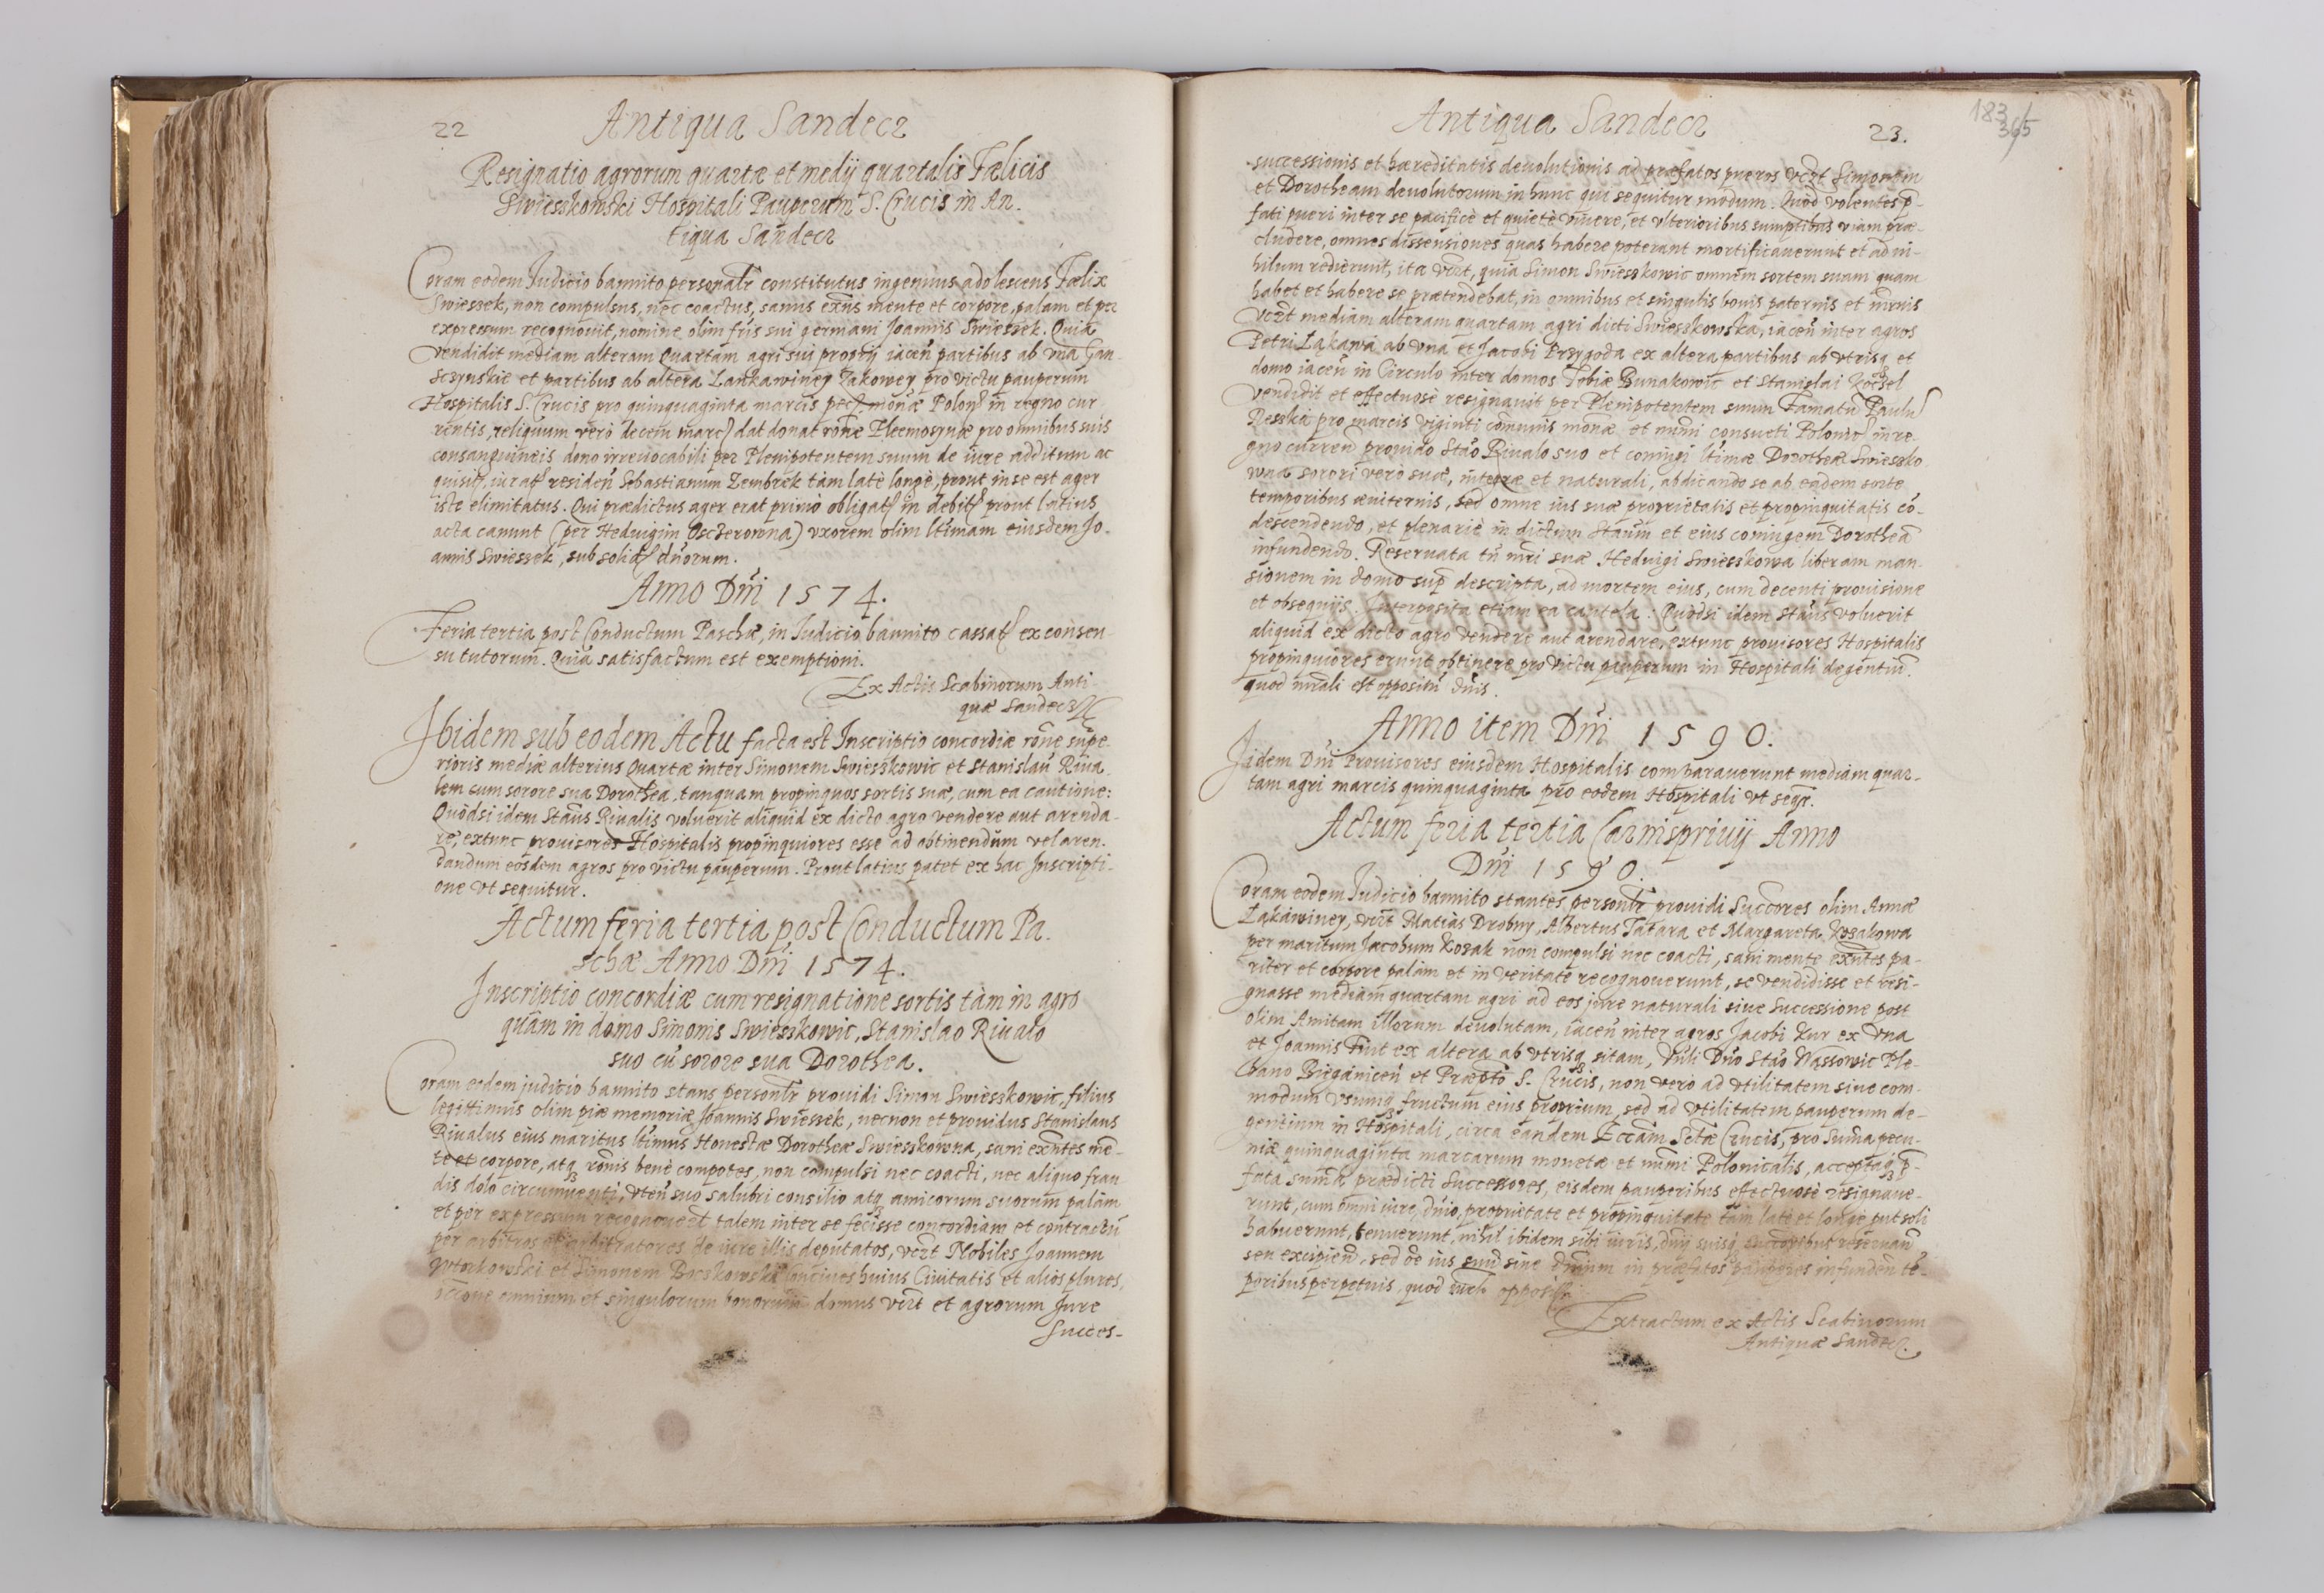 22
Antiqua Sandecz
Resignatio agrorum quartæ et medij quartalis Fælicis
Swieszkowski Hospitali Pauperum S. Crucis in An-
tiqua Sandecz
Coram eodem Judicio bannito personalr constitutus ingenuus adolescens Fælix
Swieszek, non compulsus, nec coactus, sanus exñs mente et corpore, palam et per
expressum recognouit, nomine olim frīs sui germani Joannis Swieszek. Quia
vendidit mediam alteram Quartam agri sui proprij iaceñ partibus ab vna Gan-
sczynskie et partibus ab altera Lankawiney Zakowey pro victu pauperum
Hospitalis S. Crucis pro quinquaginta marcis pec. monæ Polon in regno cur-
rentis, reliquum verò decem marc dat donat rōne Eleemosynæ pro omnibus suis
consanguineis dono irreuocabili per Plenipotentem suum de iure additum ac
quisit, iurat residen Sebastianum Zembrek tàm latè longè, prout in se est ager
iste elimitatus. Qui prædictus ager erat primò obligat in debit prout latius
acta canunt (per Heduigim Osczeronna) vxorem olim ltimam eiusdem Jo-
annis Swieszek, sub solid duorum.
Anno Dñi 1574.
Feria tertia post Conductum Paschæ, in Judicio bannito cassat ex consen-
su tutorum. Quia satisfactum est exemptioni.
Ex Actis Scabinorum Anti-
quæ Sandecz
Ibidem sub eodem Actu facta est Inscriptio concordiæ rōne supe-
rioris mediæ alterius Quartæ inter Simonem Swieszkowic et Stanislaū Riua-
lem cum sorore sua Dorothea, tanquam propinquos sortis suæ, cum ea cautione:
Quòdsi idem Staūs Riualis voluerit aliquid ex dicto agro vendere aut arenda-
re, extunc prouisores Hospitalis propinquiores esse ad obtinendum vel aren-
dandum eosdem agros pro victu pauperum. Prout latius patet ex hac Inscripti-
one vt sequitur.
Actum feria tertia post Conductum Pa-
schæ Anno Dñi 1574.
Inscriptio concordiæ cum resignatione sortis tàm in agro
quàm in domo Simonis Swieszkowic, Stanislao Riualo
suo cū sorore sua Dorothea.
Coram eodem judicio bannito stans personlr prouidi Simon Swieszkowic, filius
legittimus olim piæ memoriæ Joannis Swieszek, necnon et prouidus Stanislaus
Riualus eius maritus ltimus Honestæ Dorotheæ Swieszkowna, sani exñtes mē-
te et corpore, atq rōnis benè compotes, non compulsi nec coacti, nec aliquo frau
dis dolo circumuenti, vten suo salubri consilio atq amicorum suorum palàm
et per expressum recognouert talem inter se fecisse concordiam et contractū
per arbitros et arbitratores de iure illis deputatos, vczt Nobiles Joannem
et Simonem Boczkowski conciues huius Ciuitatis et alios plures,
rōne omnium et singulorum bonorum domus vczt et agrorum Jure
Succes-
Antiqua Sandecz
23.
183
365
successionis et hæreditatis deuolutionis ad præfatos pueros vczt Simonem
et Dorotheam deuolutorum in hunc qui sequitur modum. Quòd volentes p-
fati pueri inter se pacificè et quietè viuere, et vlterioribus sumptibus viam præ-
cludere, omnes dissensiones quas habere poterant mortificauerunt et ad ni-
hilum redierunt, ita vczt, quia Simon Swieszkowic omnem sortem suam quam
habet et habere se prætendebat, in omnibus et singulis bonis paternis et mrnis
vczt mediam alteram quartam agri dicti Swieszkowska, iaceñ inter agros
Petri Ląkawa ab vna et Jacobi Przygoda ex altera partibus ab vtrisq et
domo iaceñ in Circulo inter domos Tobiæ Bunakowic et Stanislai Kocsel
vendidit et effectuosè resignauit per Plenipotentem suum Famatū Paulū
Resska pro marcis viginti cōmunis monæ et numi consueti Polonic in re-
gno curreñ prouido Stāo Riualo suo et coniugi ltimæ Dorotheæ Swieszko-
wna sorori verò suæ, integræ et naturali, abdicando se ab eadem sorte
temporibus æuiternis, sed omne ius suæ proprietatis et propinquitatis cō-
descendendo, et plenariè in dictum Staūm et eius coniugem Dorotheā
infundendo. Reseruata tñ mri suæ Heduigi Swieszkowa liberam man-
sionem in domo sup descripta, ad mortem eius, cum decenti prouisione
et obsequijs. Interposita etiam ea cautela: Quòdsi idem Staūs voluerit
aliquid ex dicto agro vendere aut arendare, extunc prouisores Hospitalis
propinquiores erunt obtinere pro victu pauperum in Hospitali degentiū.
quod mrali est oppositū dñis.
Anno item Dñi 1590.
Iidem Dñi Prouisores eiusdem Hospitalis comparauerunt mediam quar-
tam agri marcis quinquaginta pro eodem Hospitali vt seqr.
Actum feria tertia Carnispriuij Anno
Dñi 1590.
Coram eodem Judicio bannito stantes personlr prouidi Succōres olim Annæ
Ląkawiney, vczt Matias Drobny, Albertus Tatara et Margareta Kozakowa
per maritum Jacobum Kozak non compulsi nec coacti, sani mente exñtes pa-
riter et corpore palàm et in veritate recognouerunt, se vendidisse et resi-
gnasse mediam quartam agri ad eos jure naturali siue successione post
olim Amitam illorum deuolutam, iaceñ inter agros Jacobi Kur ex vna
et Joannis Fiut ex altera ab vtrisq sitam, Vnli Dño Stāo Wassowic Ple-
bano Bieganiceñ et Præpto S. Crucis, non verò ad vtilitatem siue com-
modum vsumq fructum eius proprium, sed ad vtilitatem pauperum de-
gentium in Hospitali, circa eandem Eccām Sctæ Crucis, pro suma pecu-
niæ quinquaginta marcarum monetæ et numi Polonicalis, acceptaq p-
fata summa prædicti Successores, eisdem pauperibus effectuosè resignaue-
runt, cum omni iure, dnio, proprietate et propinquitate tàm latè et longè put soli
habuerunt, tenuerunt, nihil ibidem sibi iuris, dnij suisq successoribus reseruañ
seu excipieñ, sed oē ius suū siue dnium in præfatos pauperes infundeñ tē-
poribus perpetuis, quod opposit
Extractum ex Actis Scabinorum
Antiquæ Sandec.